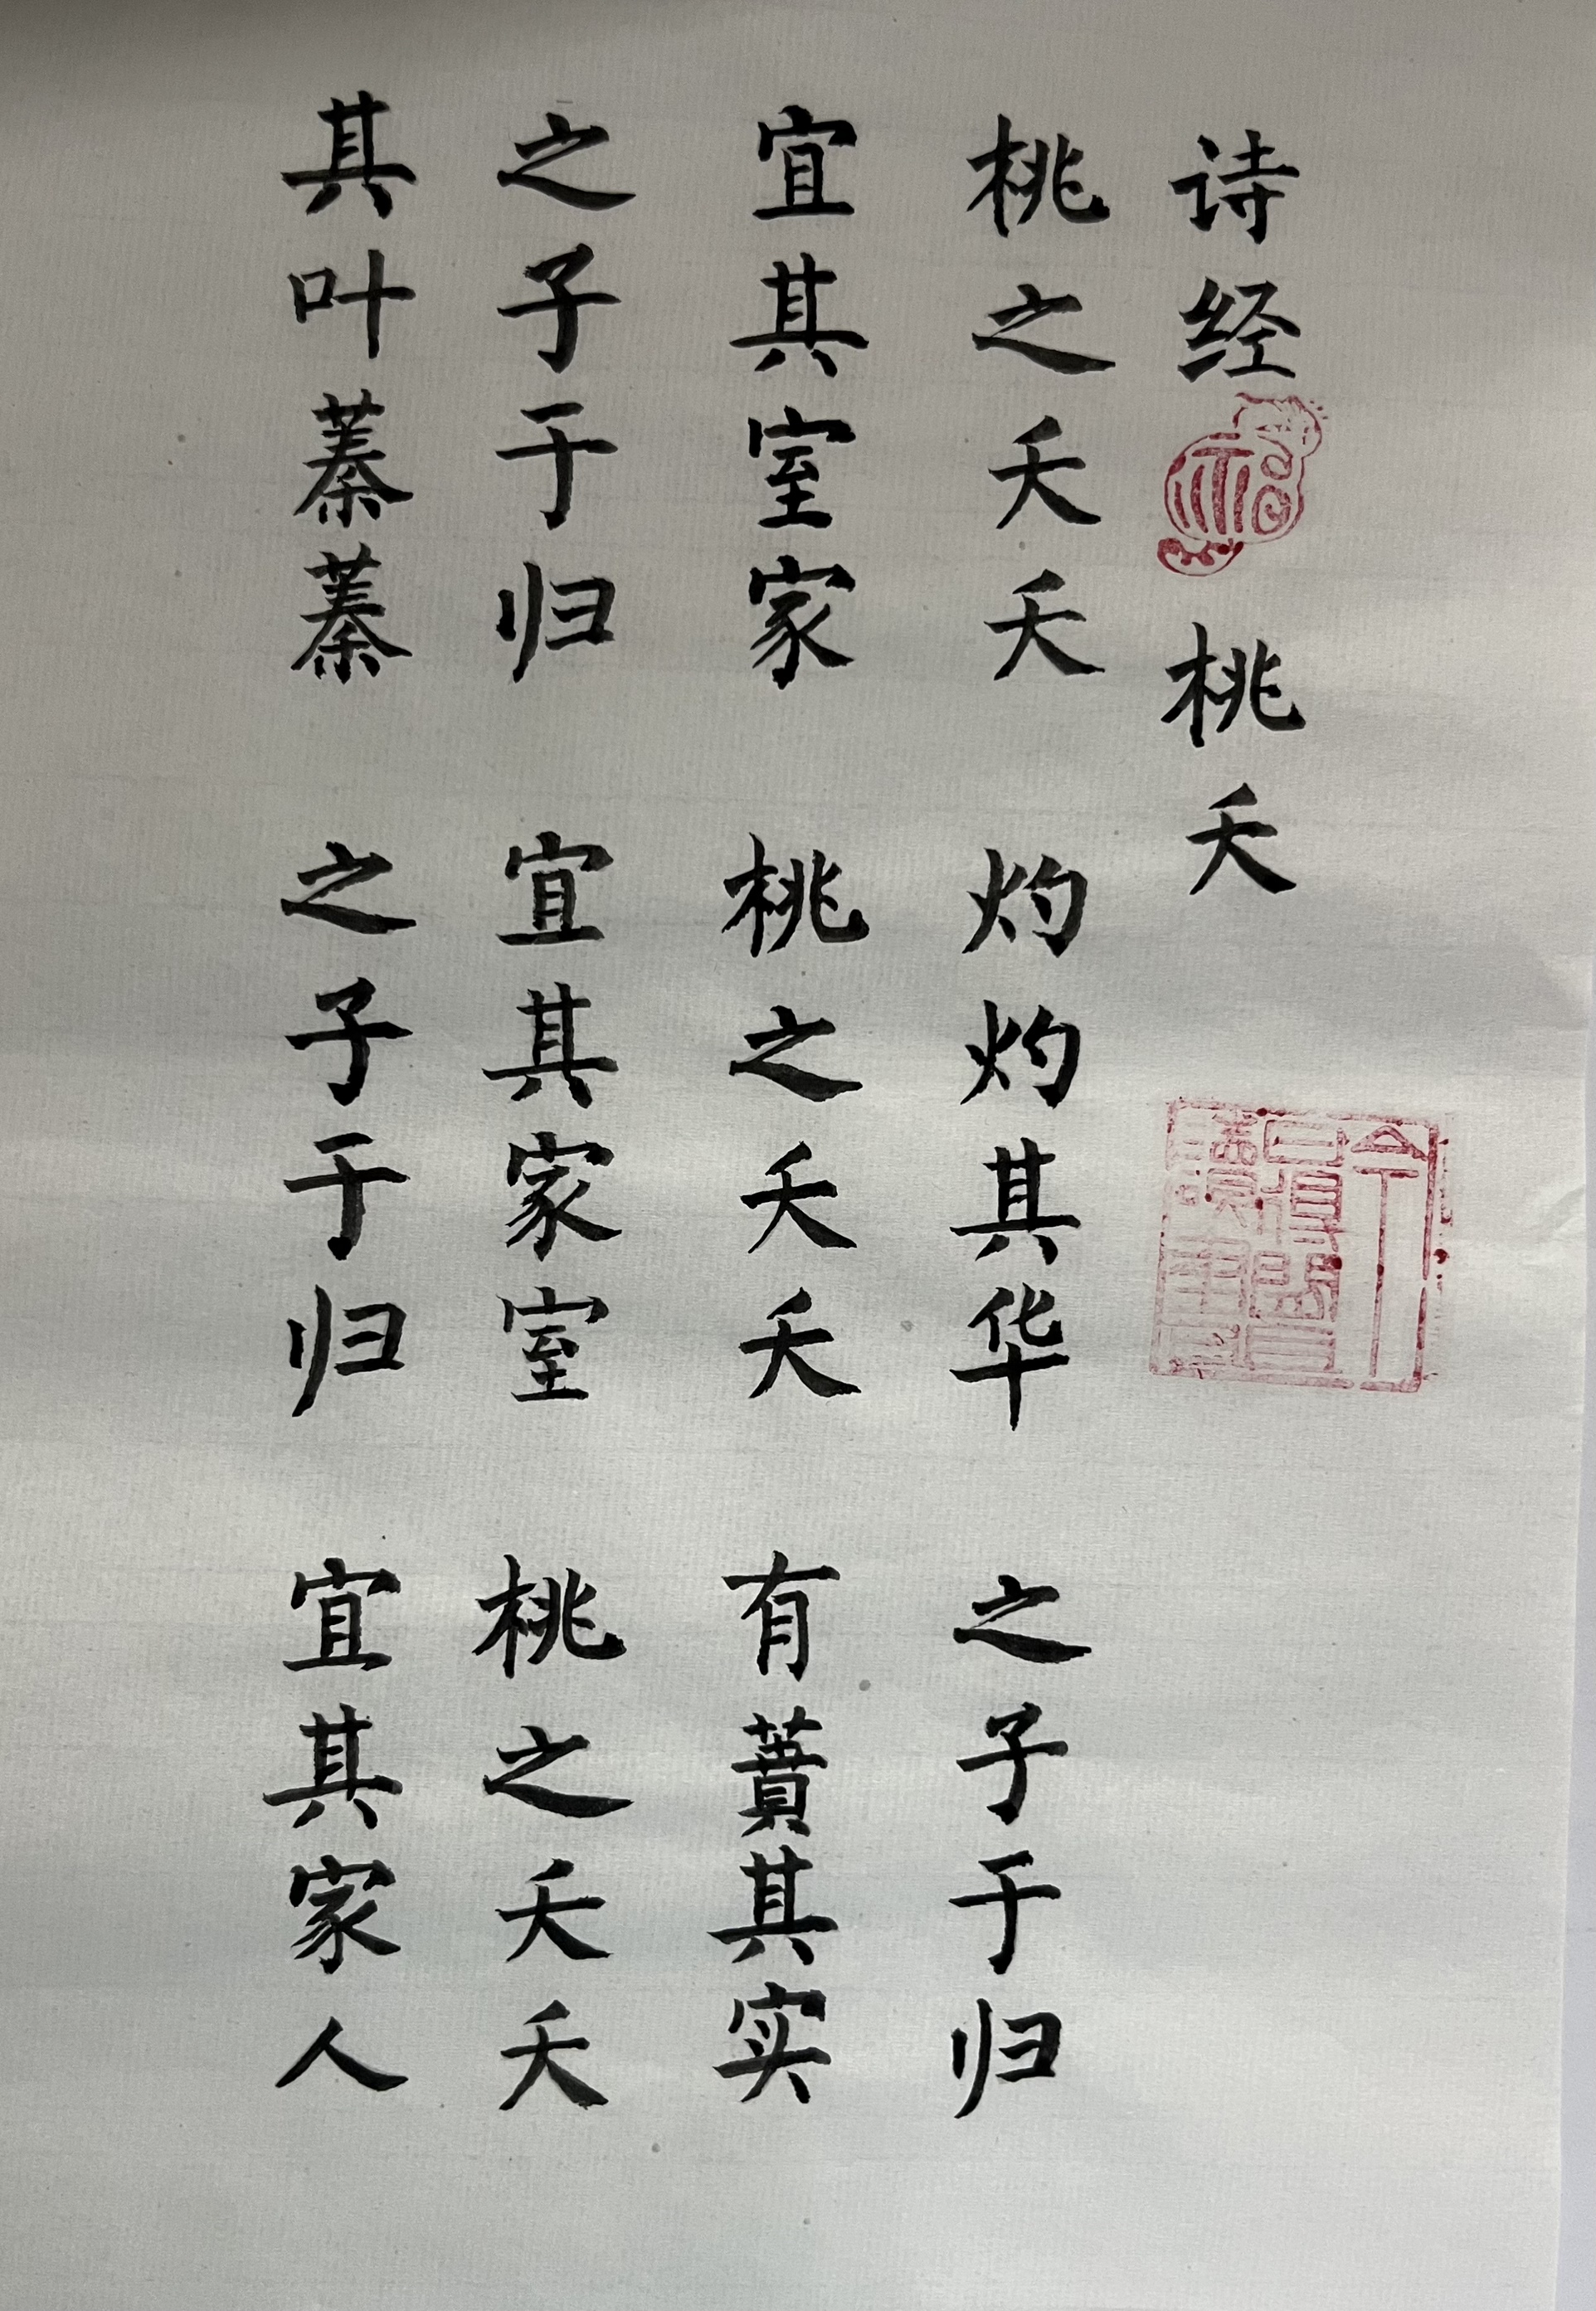 诗经 福 桃夭
桃之夭夭 灼灼其华 之子于归
宜其室家 桃之夭夭 有蕡其实
之子于归 宜其家室 桃之夭夭
其叶蓁蓁 之子于归 宜其家人